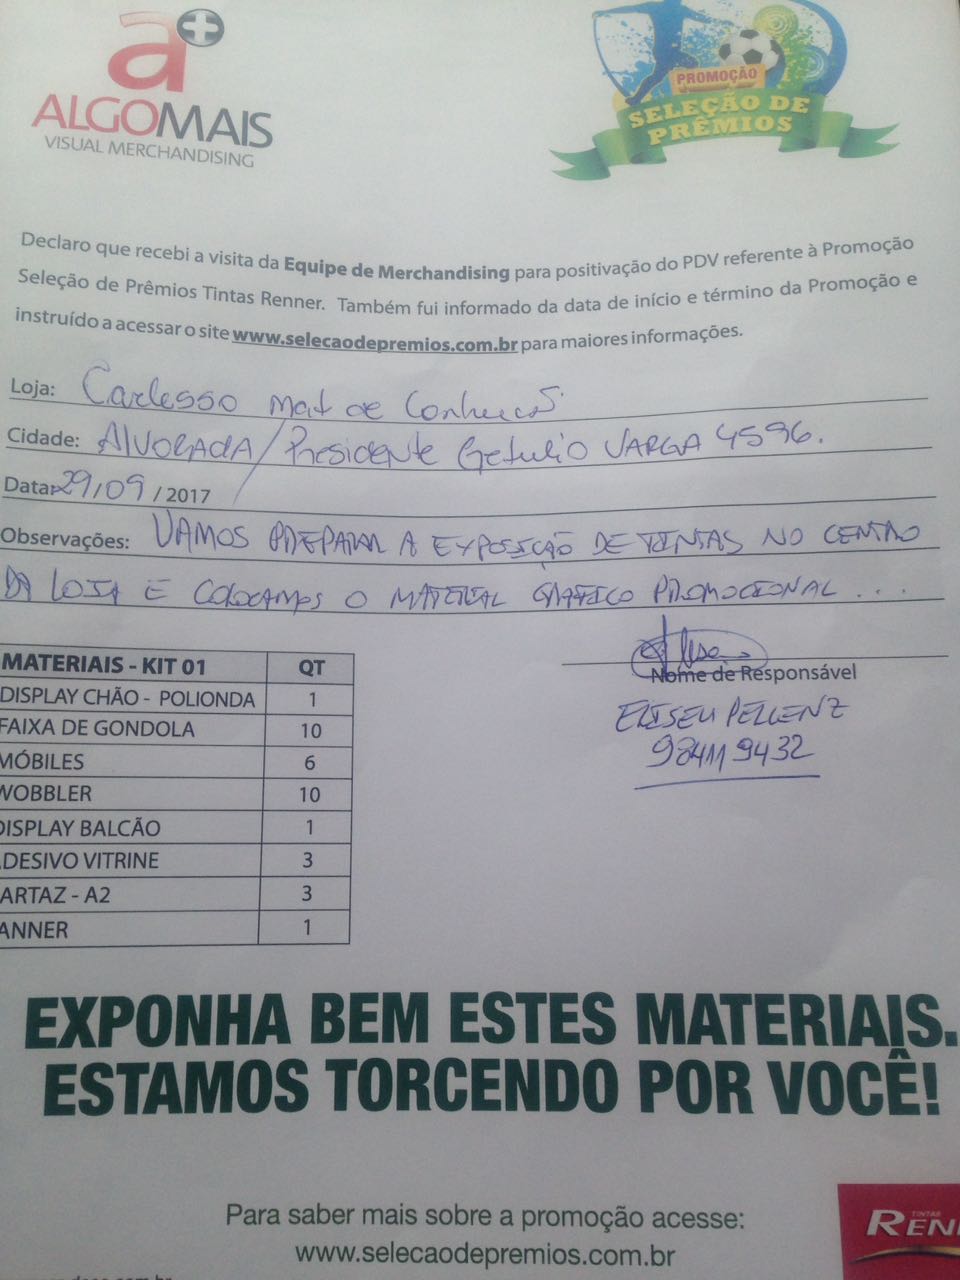 a+
ALGOMAIS
VISUAL MERCHANDISING
PROMOÇÃO
SELEÇÃO DE
PRÊMIOS
Declaro que recebi a visita da Equipe de Merchandising para positivação do PDV referente à Promoção
Seleção de Prêmios Tintas Renner. Também fui informado da data de início e término da Promoção e
instruído a acessar o site www.selecaodepremios.com.br para maiores informações.
Loja: Carlesso Mat de
Cidade: ALVORADA / Presidente Getulio VARGA 4596.
Data: 29/09 / 2017
Observações: VAMOS PREPARAR A EXPOSIÇÃO DE TINTAS NO CENTRO
DA LOJA E COLOCAMOS O MATERIAL GRÁFICO PROMOCIONAL ...
MATERIAIS - KIT 01 QT
DISPLAY CHÃO - POLIONDA 1
FAIXA DE GONDOLA 10
MÓBILES 6
WOBBLER 10
DISPLAY BALCÃO 1
DESIVO VITRINE 3
ARTAZ - A2 3
ANNER 1
Nome de Responsável
ELISEU PELLENZ
984119432
EXPONHA BEM ESTES MATERIAIS.
ESTAMOS TORCENDO POR VOCÊ!
Para saber mais sobre a promoção acesse:
www.selecaodepremios.com.br
TINTAS
RENN